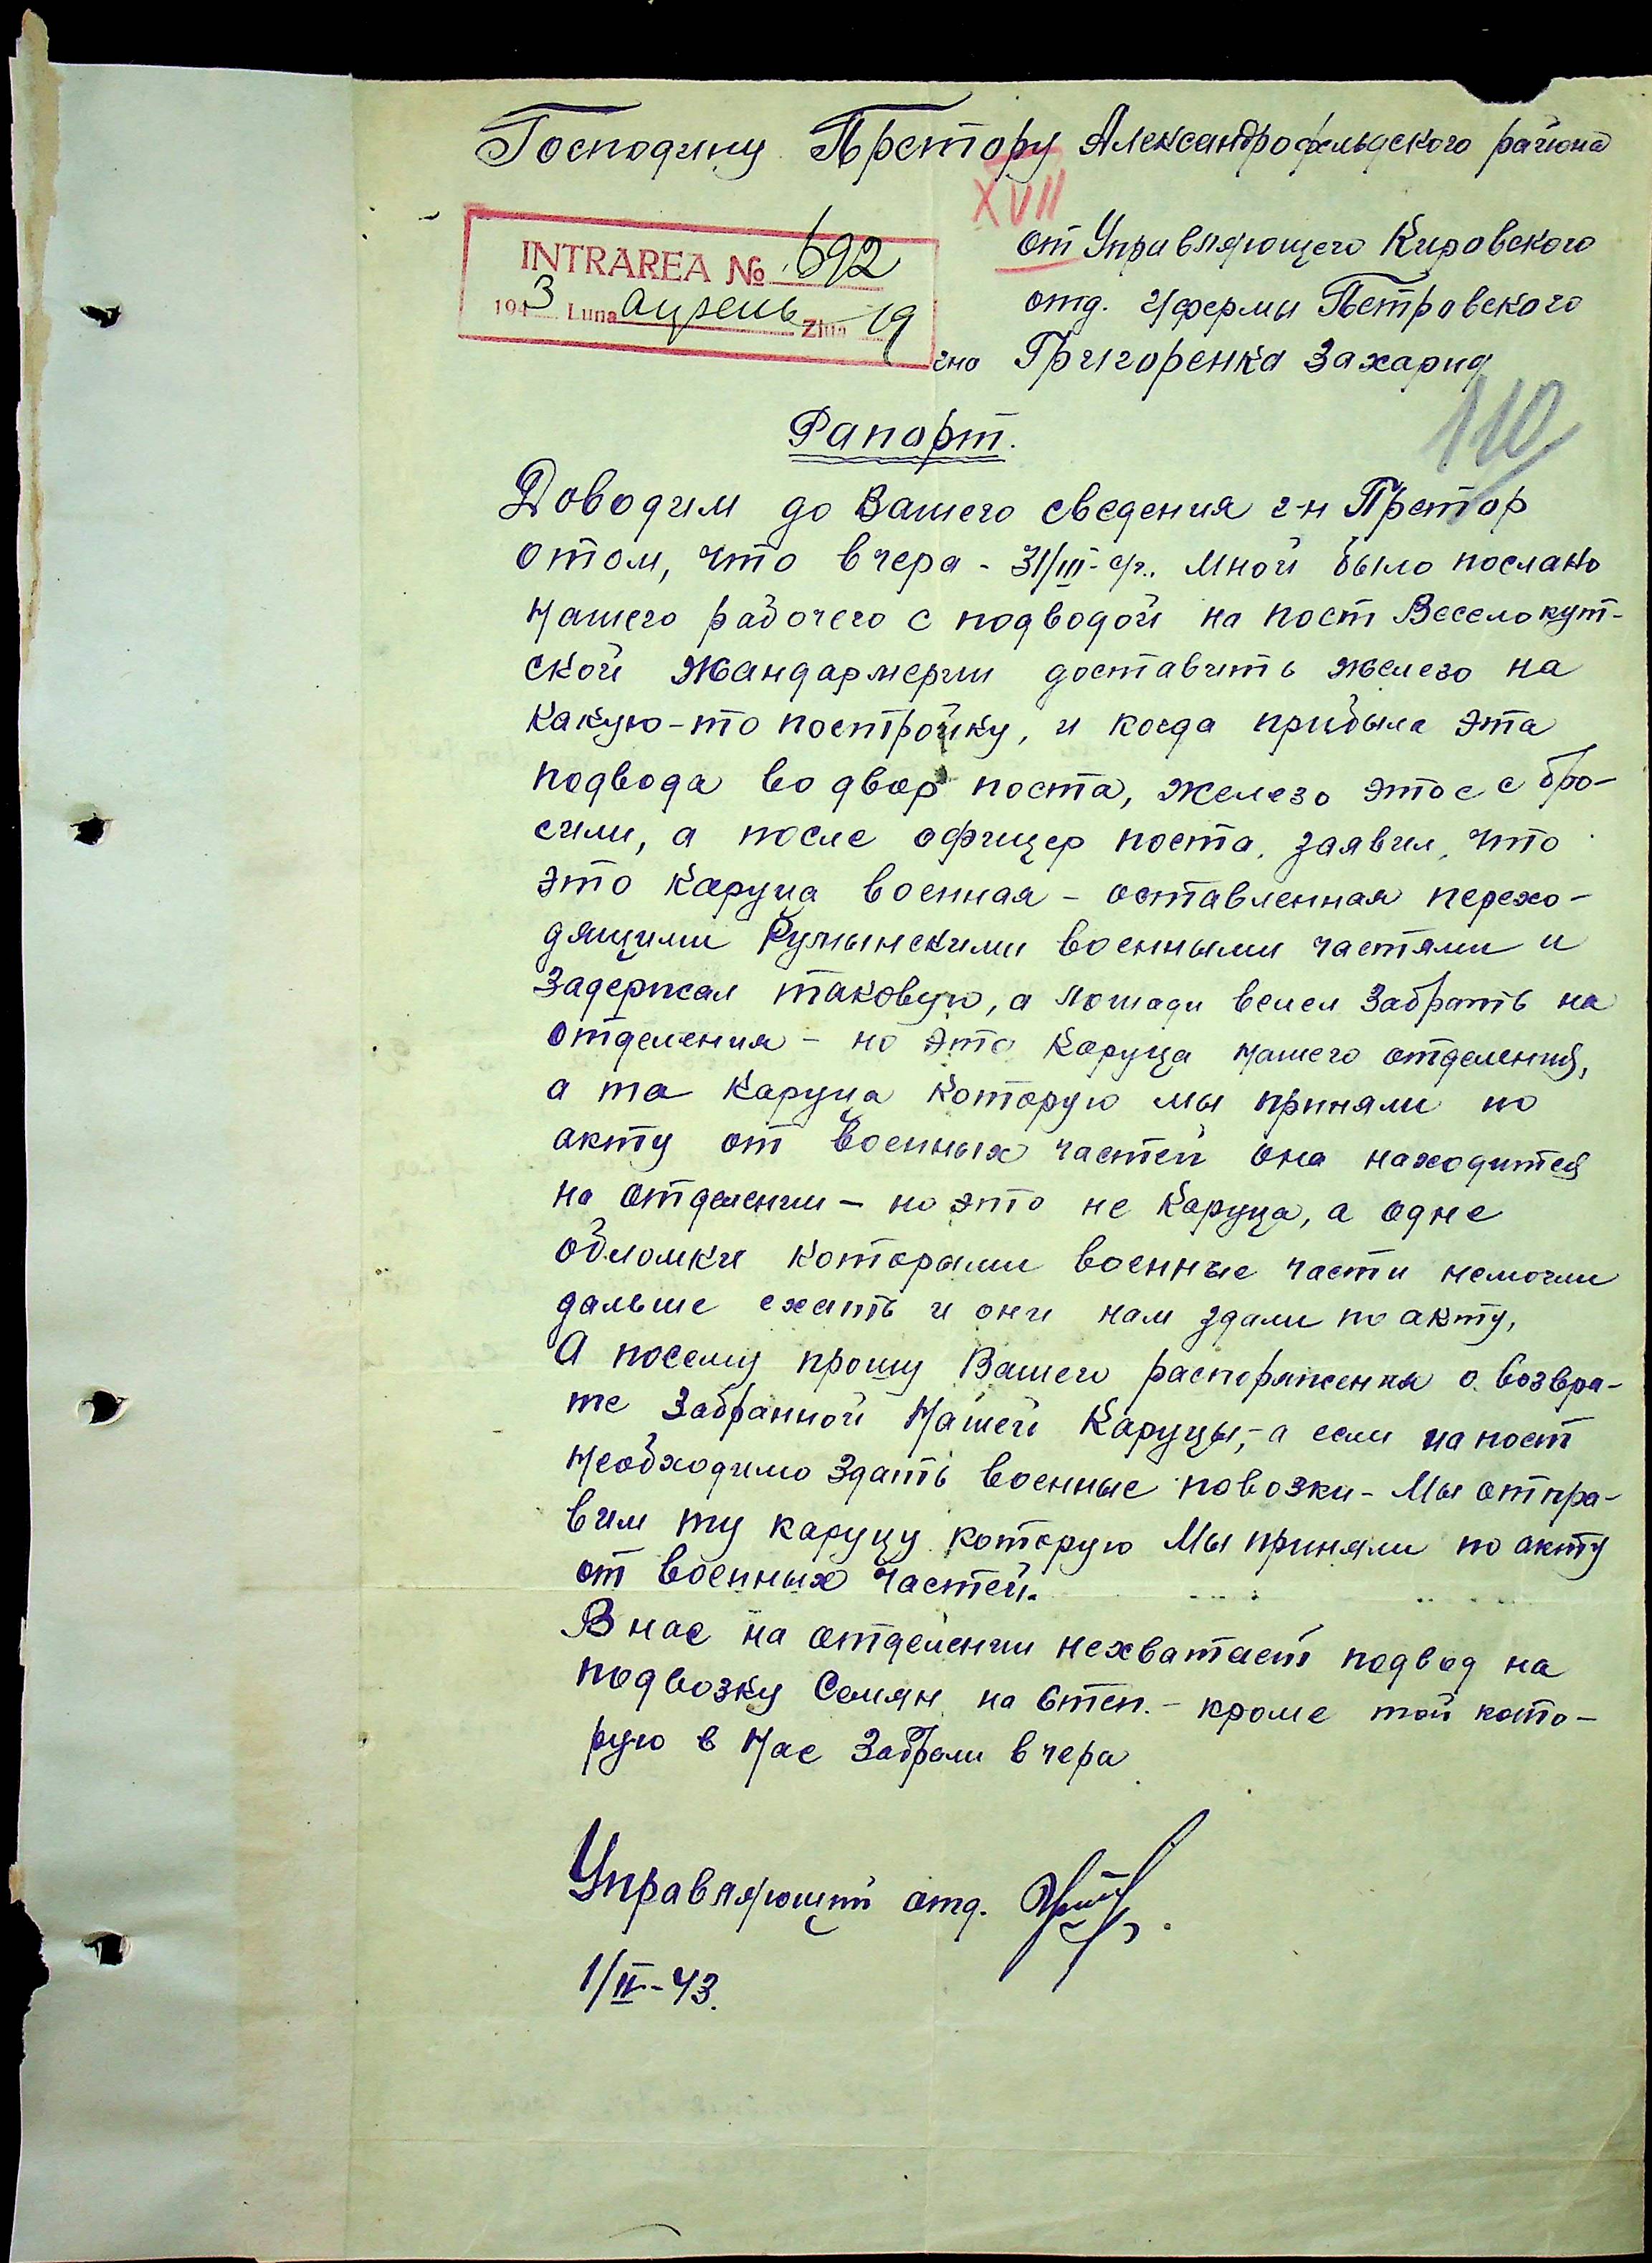 Господину Претору Александрофельдского района
XVII
INTRAREA № 692
1943 Luna апрель Ziua 19
от Управляющего Кировского
отд. Уфермы Петровского
Григоренка Захария
110
Рапорт.
Доводим до Вашего сведения г-н Претор
отом, что вчера - 31/III- с/г.. мной было послано
Нашего рабочего с подводой на пост Веселокут-
ской жандармерии доставить железо на
какую-то постройку, и когда прибыла эта
подвода во двор поста, железо этое сбро-
сили, а после офицер поста, заявил, что
это каруца военная - оставленная перехо-
дящими Румынскими военными частями и
задержал таковую, а лошади велел забрать на
отделения - но эта каруца нашего отделения,
а та каруца которую мы приняли по
акту от военных частей она находится
на отделении - но это не каруца, а одне
обломки которыми военные части немогли
дальше ехать и они нам здали по акту,
А посему прошу Вашего распоряжения о возвра-
те забранной Нашей Каруцы,- а если на пост
Необходимо здать военные повозки - Мы отпра-
вим ту каруцу которую Мы приняли по акту
от военных частей.
В нас на отделении нехватает подвод на
подвозку Семян на степ. - кроме той кото-
рую в Нас забрали вчера
Управляющий отд.
1/IV-43.